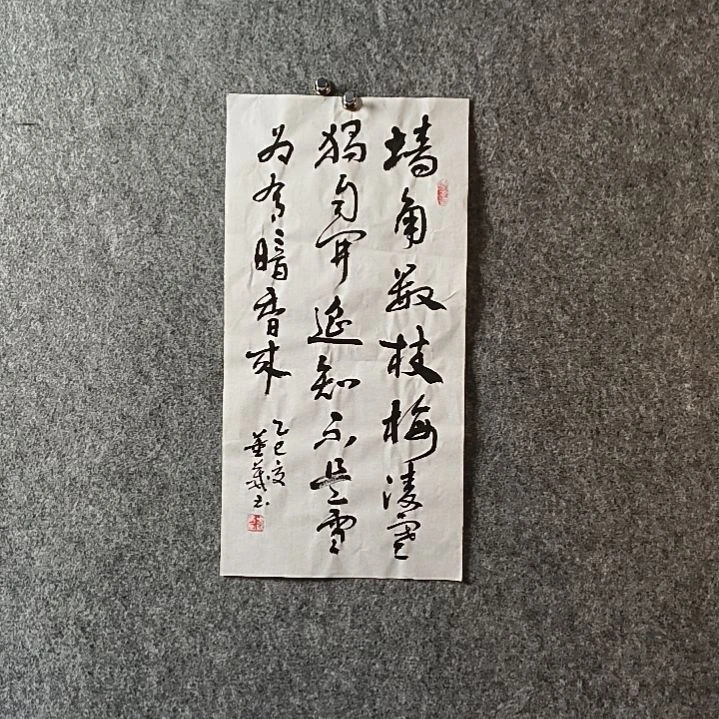 墙角数枝梅凌寒
独自开遥知不是雪
为有暗香来
乙巳夏
董義书